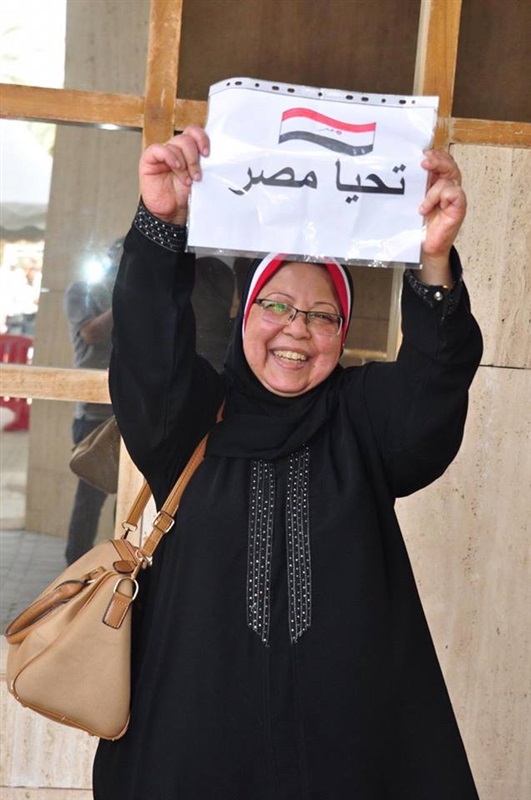 تحيا مصر